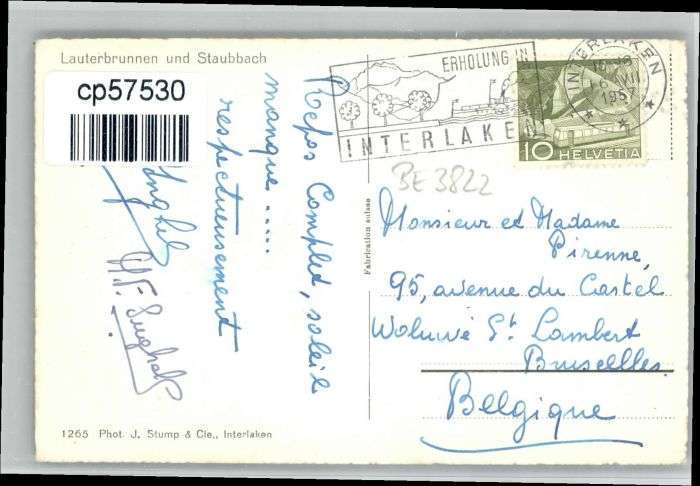 Lauterbrunnen und Staubbach
cp57530
Repos Complet, soleil
manque.....
respectueusement
1265 Phot. J. Stump & Cie., Interlaken
Fabrication suisse
ERHOLUNG IN
INTERLAKEN
INTERLAKEN
VII
1957
10 HELVETIA
BE 3822
Monsieur et Madame
Pirenne,
95, avenue du Castel
Woluwé St Lambert
Bruxelles.
Belgique